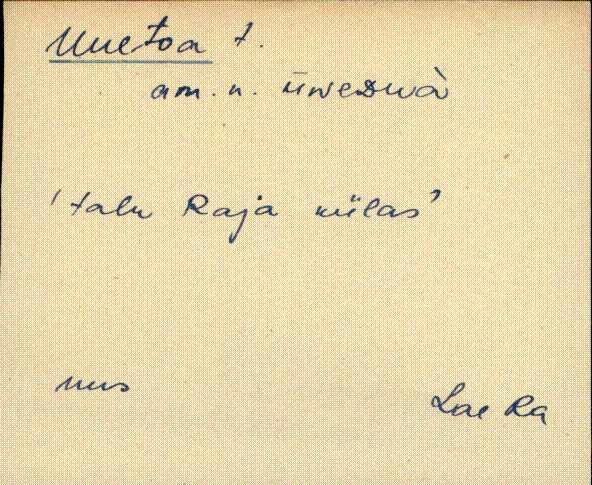 Uuetoa t.
am. n.
'talu Raja külas'
uus
Lae Ra